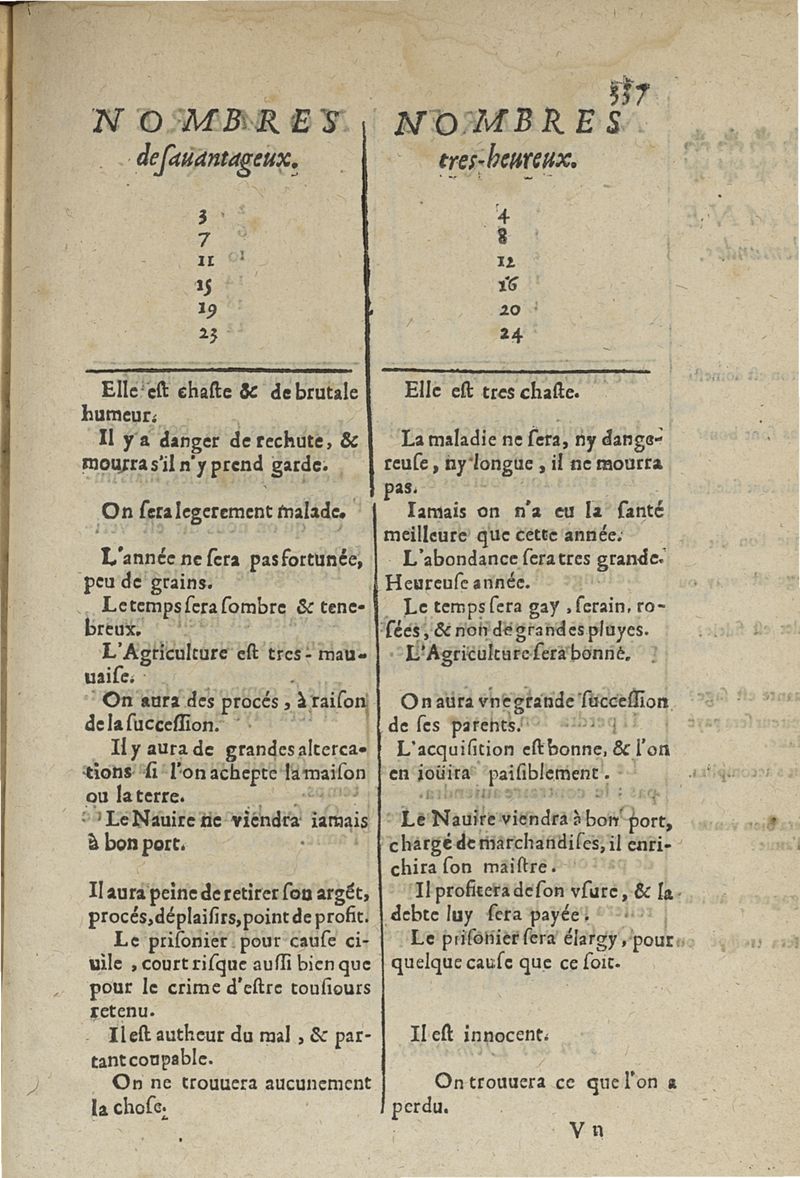 337
NOMBRES
desauantageux.
3
7
11
15
19
23
Elle est chaste & de brutale
humeur.
Il y a danger de rechute, &
mourra s'il n'y prend garde.
On sera legerement malade.
L'année ne sera pas fortunée,
peu de grains.
Le temps sera sombre & tene-
breux.
L'Agriculture est tres-mau-
uaise.
On aura des procés, à raison
de la succession.
Il y aura de grandes alterca-
tions si l'on achepte la maison
ou la terre.
Le Nauire ne viendra iamais
à bon port.
Il aura peine de retirer son argẽt,
procés, déplaisirs, point de profit.
Le prisonier pour cause ci-
uile, court risque aussi bien que
pour le crime d'estre tousiours
retenu.
Il est autheur du mal, & par-
tant coupable.
On ne trouuera aucunement
la chose.
NOMBRES
tres-heureux.
4
8
12
16
20
24
Elle est tres chaste.
La maladie ne sera, ny dange-
reuse, ny longue, il ne mourra
pas.
Iamais on n'a eu la santé
meilleure que cette année.
L'abondance sera tres grande.
Heureuse année.
Le temps sera gay, serain, ro-
sées, & non de grandes pluyes.
L'Agriculture sera bonne.
On aura vne grande succession
de ses parents.
L'acquisition est bonne, & l'on
en ioüira paisiblement.
Le Nauire viendra à bon port,
chargé de marchandises, il enri-
chira son maistre.
Il profitera de son vsure, & la
debte luy sera payée.
Le prisonier sera élargy, pour
quelque cause que ce soit.
Il est innocent.
On trouuera ce que l'on a
perdu.
V n